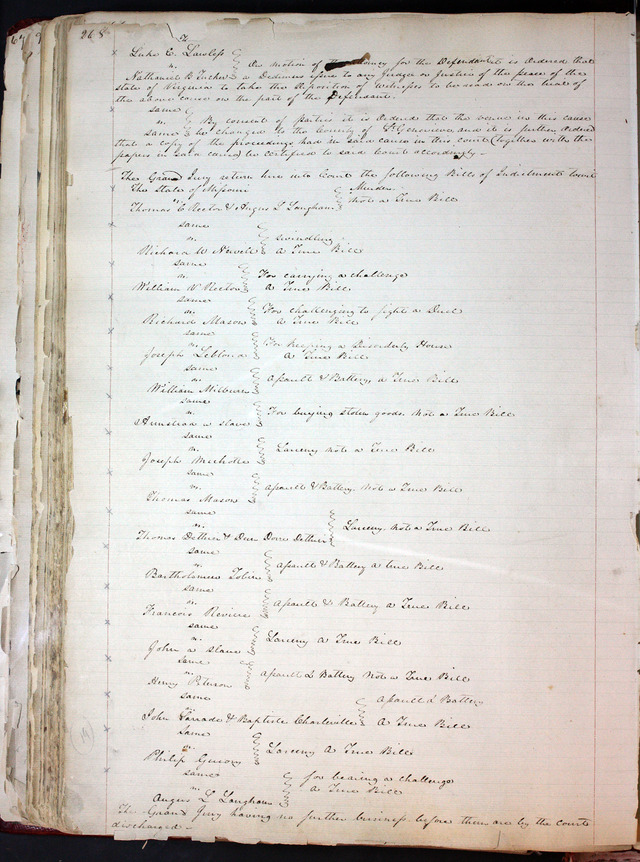 268
Luke E. Lawless
vs.
Nathaniel B Tucker
On motion of the attorney for the Defendant it is Ordered that
a Dedimus issue to any Judge or Justice of the peace of the
State of Virginia to take the deposition of Witnesses to be read on the trial of
the above cause on the part of the Defendant.
same
vs.
same
By consent of parties it is Ordered that the venue in this cause
be changed to the County of St Genevieve and it is further Ordered
that a copy of the proceedings had in said cause in this court (together with the
papers in said cause) be certified to said Court accordingly.
The Grand Jury return here into Court the following Bills of Indictments towit
The State of Missouri
vs
Thomas C Rector & Angus L Langham
Murder.
Not a True Bill
same
vs.
Richard W
Swindling
A True Bill
same
vs.
William V Rector
For carrying a challenge
A True Bill
same
vs.
Richard Mason
For challenging to fight a Duel
A True Bill
same
vs.
Joseph Leblond
For keeping a Disorderly House
A True Bill
same
vs.
William Milburn
Assault & Battery, A True Bill
same
vs.
a slave
For buying stolen goods. Not a True Bill
same
vs.
Joseph
Larceny not a True Bill
same
vs.
Thomas Mason
Assault & Battery. Not a True Bill
same
vs.
Thomas
Larceny. Not a True Bill
same
vs.
Bartholomew
Assault & Battery a true Bill
same
vs.
Francois Reviere
Assault & Battery a True Bill
same
vs.
John a slave
Larceny A True Bill
same
vs.
Henry Peterson
Assault & Battery Not a True Bill
same
vs.
John & Baptiste Charleville
Assault & Battery
A True Bill
same
vs
Philip
Larceny A True Bill
same
vs.
Angus L Langham
for bearing a challenge
A True Bill
The Grand Jury having no further business before them are by the court
discharged